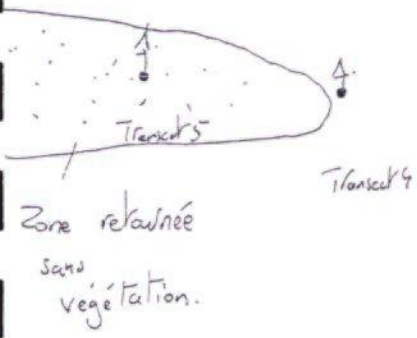 Transect 5
Transect 4
Zone retournée
sans
végétation.